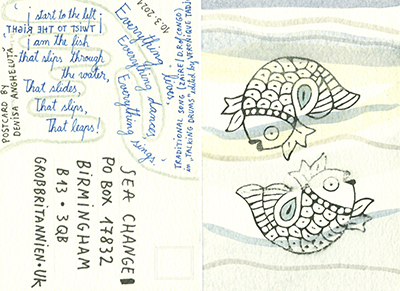 I start to the left
I TWIST TO THE RIGHT
I am the fish
that slips through
the water,
That slides,
That slips,
That leaps!
POSTCARD BY
DENISA ANGHELUȚĂ
10.3.2024
Everything
Everything dances
Everything sings
TRADITIONAL SONG (ZAÏRE/D.R. of CONGO)
in „TALKING DRUMS" edited by VERONIQUE TADJO
SEA CHANGE
PO BOX 17832
BIRMINGHAM
B13 • 3QB
GROßBRITANNIEN • UK